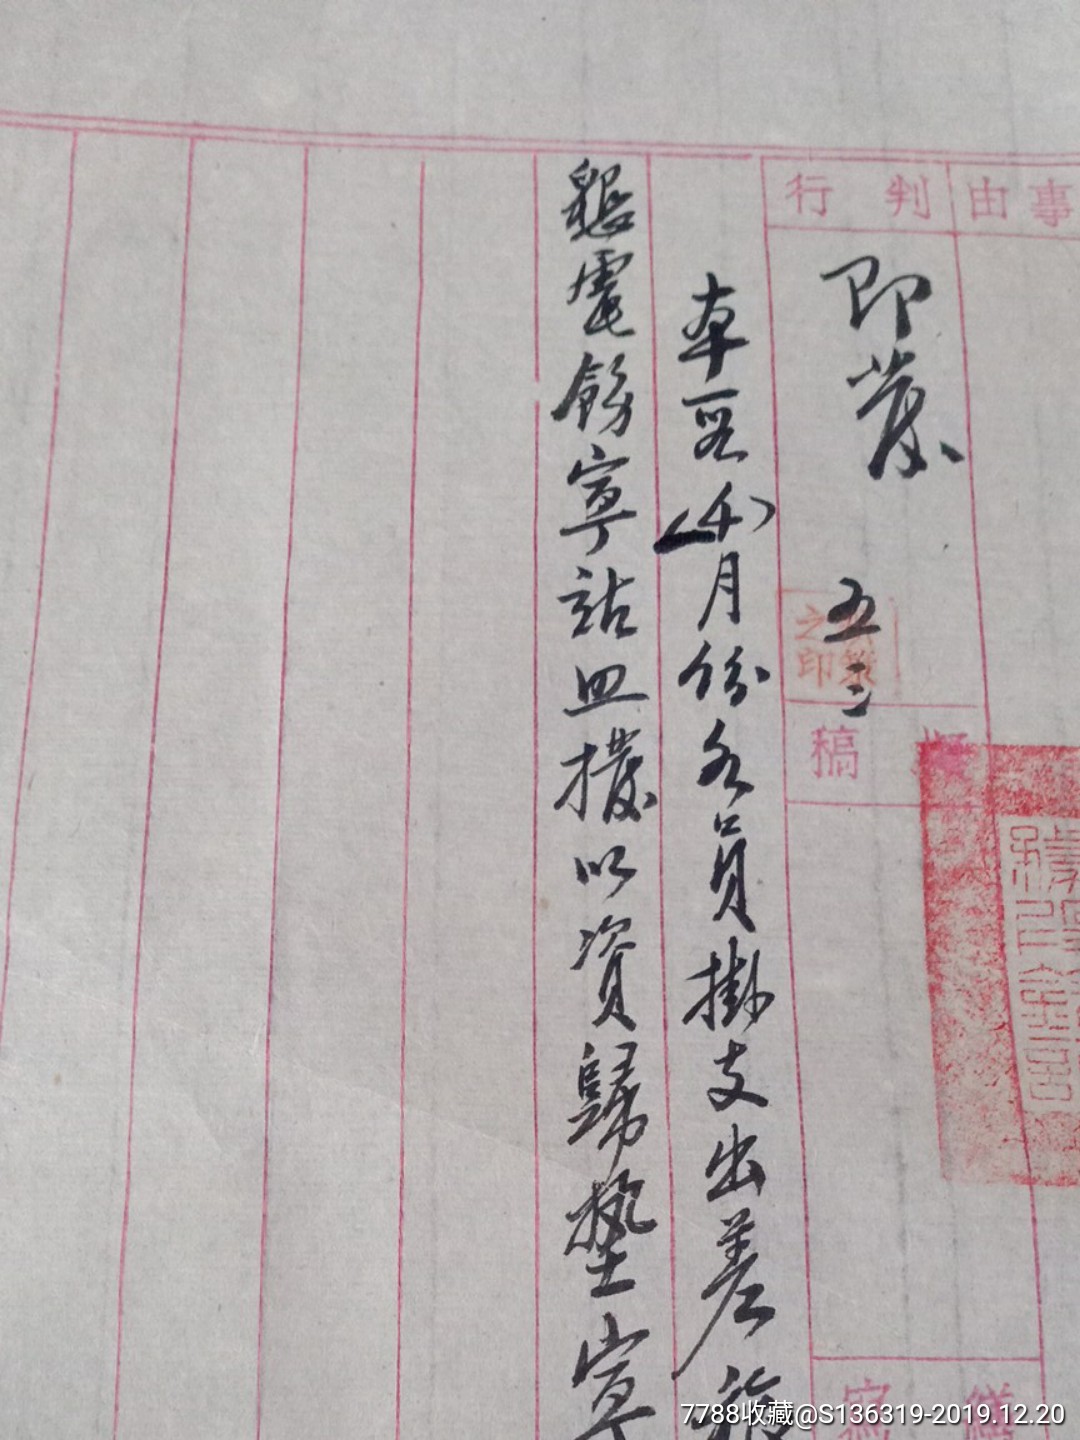 事由
判行
即發
五
擬稿
之印
繕寫
本區 月份各員掛支出差旅
懇電飭寧站 撥以資歸墊寧
7788收藏@S136319-2019.12.20